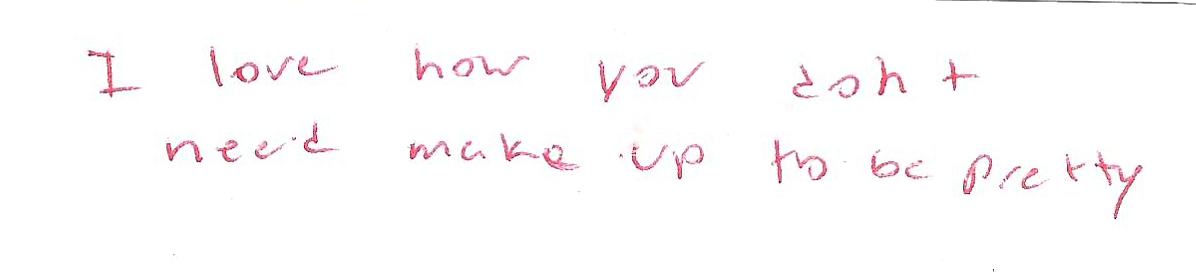 I love how you don t
need make up to be pretty